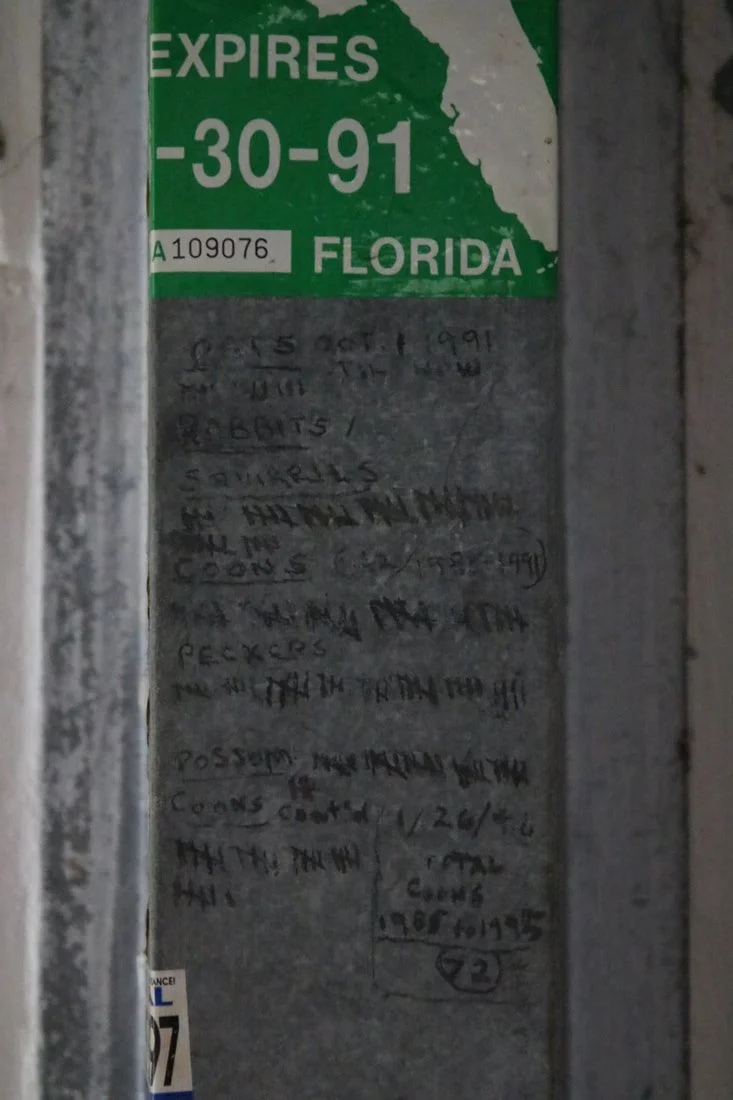 EXPIRES
-30-91
A109076 FLORIDA
OCT. 1 1991
RABBITS 1
SQUIRRILS
COONS (42/1985-1991)
PECKERS
POSSUM
COONS cont'd 1/26/
TOTAL
COONS
1985 to 1995
72
ANCE!
AL
97